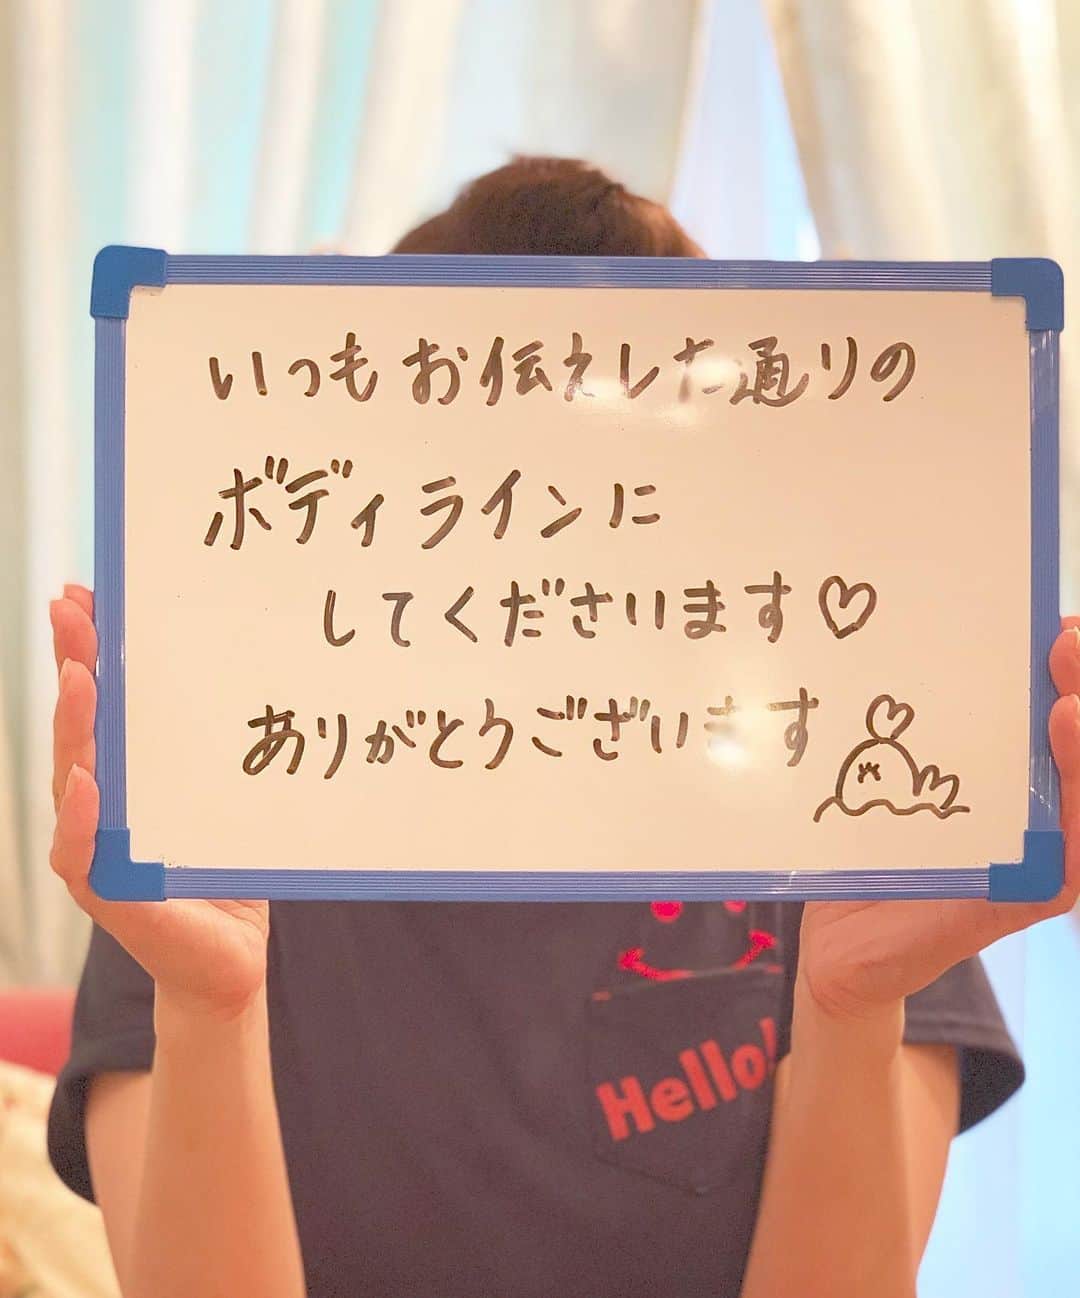 いつもお伝えした通りの
ボディラインに
してくださいます♡
ありがとうございます
Hello!